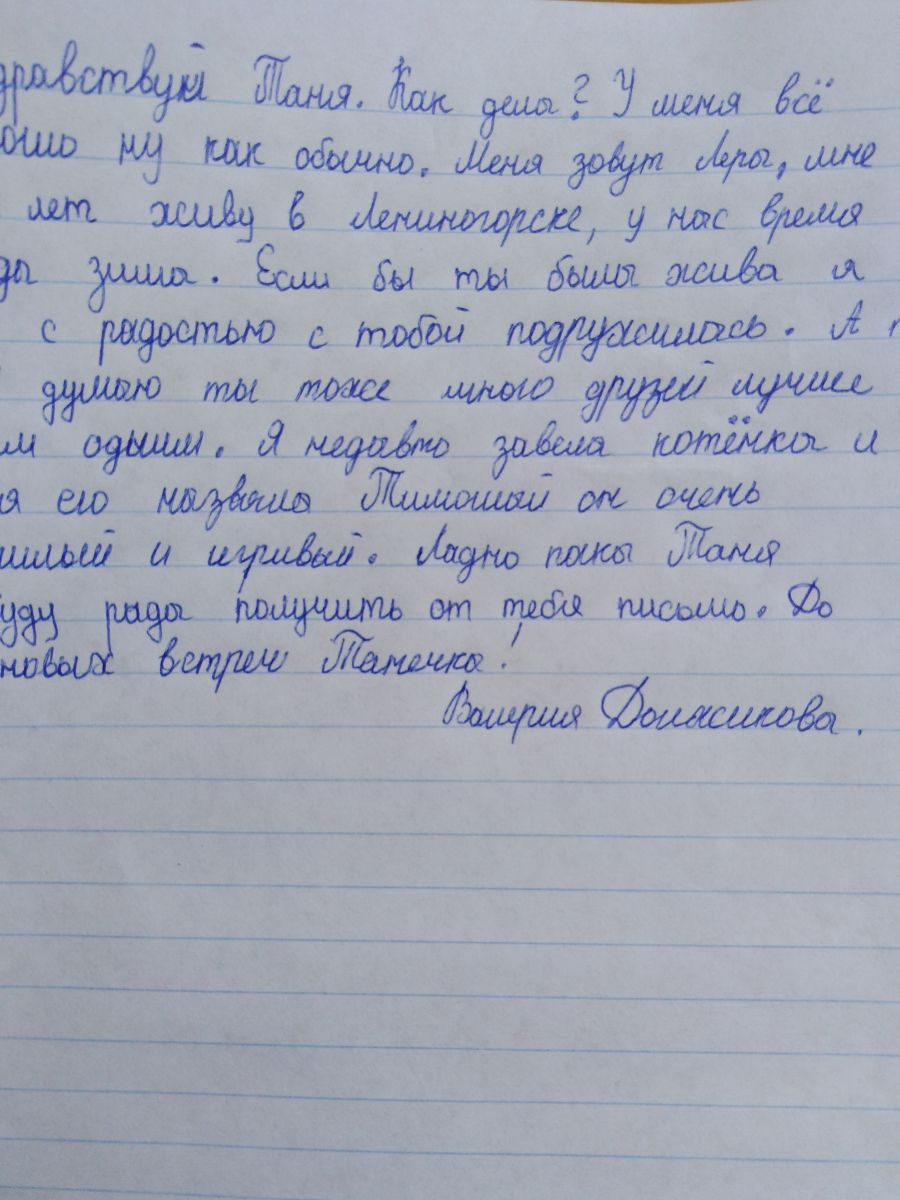 дравствуй Таня. Как дела? У меня всё
ошо ну как обычно. Меня зовут Лера, мне
лет живу в Лениногорске, у нас время
да зима. Если бы ты была жива я
с радостью с тобой подружилась. А
думаю ты тоже много друзей лучше
м одыим. Я недавто завела котёнка и
я его назвала Тимошай он очень
милый и игривый. Ладно пока Таня
уду рада получить от тебя письмо. До
новых встреч Танечка!
Валерия